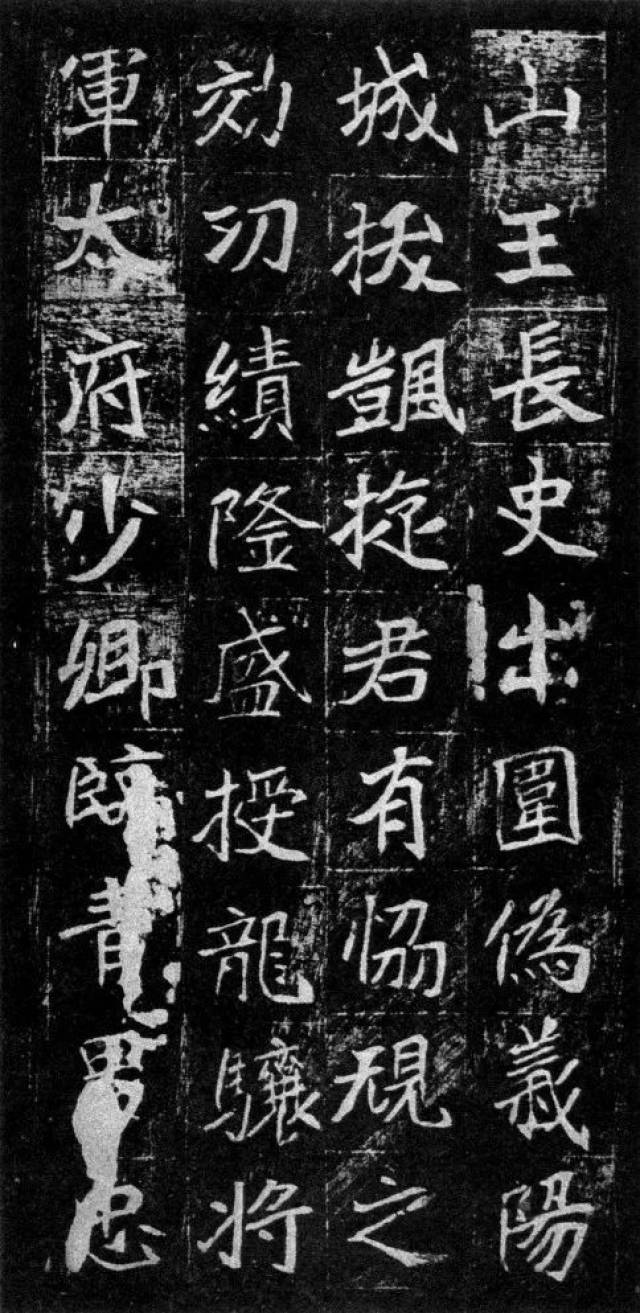 山王長史出圍偽義陽
城拔凱旋君有恊規之
効功績隆盛授龍驤將
軍太府少卿臨青男忠